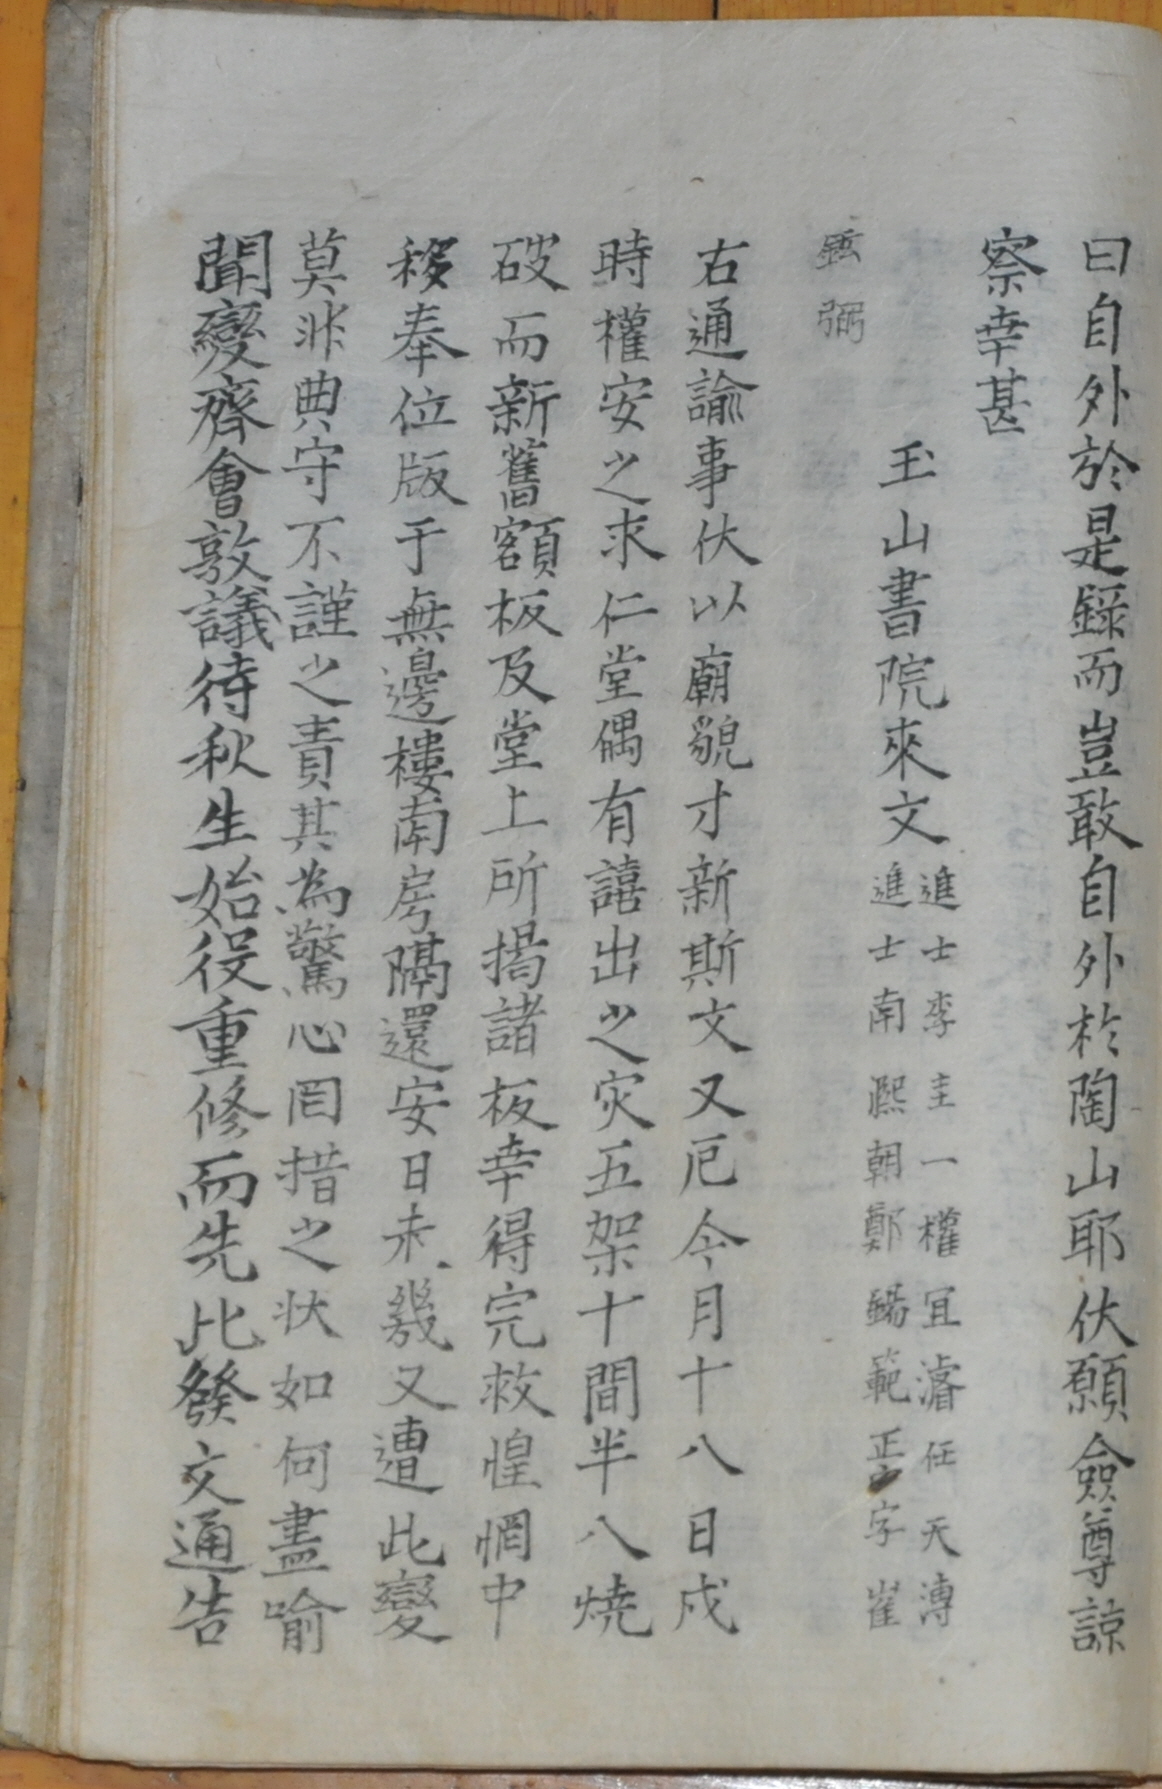 曰自外於是錄而豈敢自外於陶山耶伏願僉尊諒
察幸甚
玉山書院來文
進士李圭一權宜濬任天溥
進士南熙朝鄭錫範正字崔
鉉弼
右通諭事伏以廟貌才新斯文又厄今月十八日戌
時權安之求仁堂偶有譆出之灾五架十間半八燒
破而新舊額板及堂上所揭諸板幸得完救惶惘中
移奉位版于無邊樓南房隔還安日未幾又遭此變
莫非典守不謹之責其為驚心罔措之状如何盡喻
聞變齊會敦議待秋生始役重修而先此發文通告